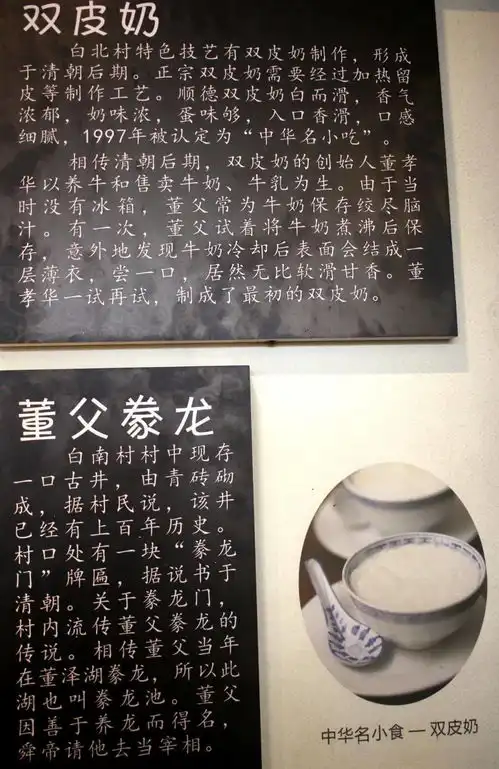 双皮奶
白北村特色技艺有双皮奶制作，形成
于清朝后期。正宗双皮奶需要经过加热留
皮等制作工艺。顺德双皮奶白而滑，香气
浓郁，奶味浓，蛋味够，入口香滑，口感
细腻，1997年被认定为“中华名小吃”。
相传清朝后期，双皮奶的创始人董孝
华以养牛和售卖牛奶、牛乳为生。由于当
时没有冰箱，董父常为牛奶保存绞尽脑
汁。有一次，董父试着将牛奶煮沸后保
存，意外地发现牛奶冷却后表面会结成一
层薄衣，尝一口，居然无比软滑甘香。董
孝华一试再试，制成了最初的双皮奶。
董父豢龙
白南村村中现存
一口古井，由青砖砌
成，据村民说，该井
已经有上百年历史。
村口处有一块“豢龙
门”牌匾，据说书于
清朝。关于豢龙门，
村内流传董父豢龙的
传说。相传董父当年
在董泽湖豢龙，所以此
湖也叫豢龙池。董父
因善于养龙而得名，
舜帝请他去当宰相。
中华名小食 — 双皮奶